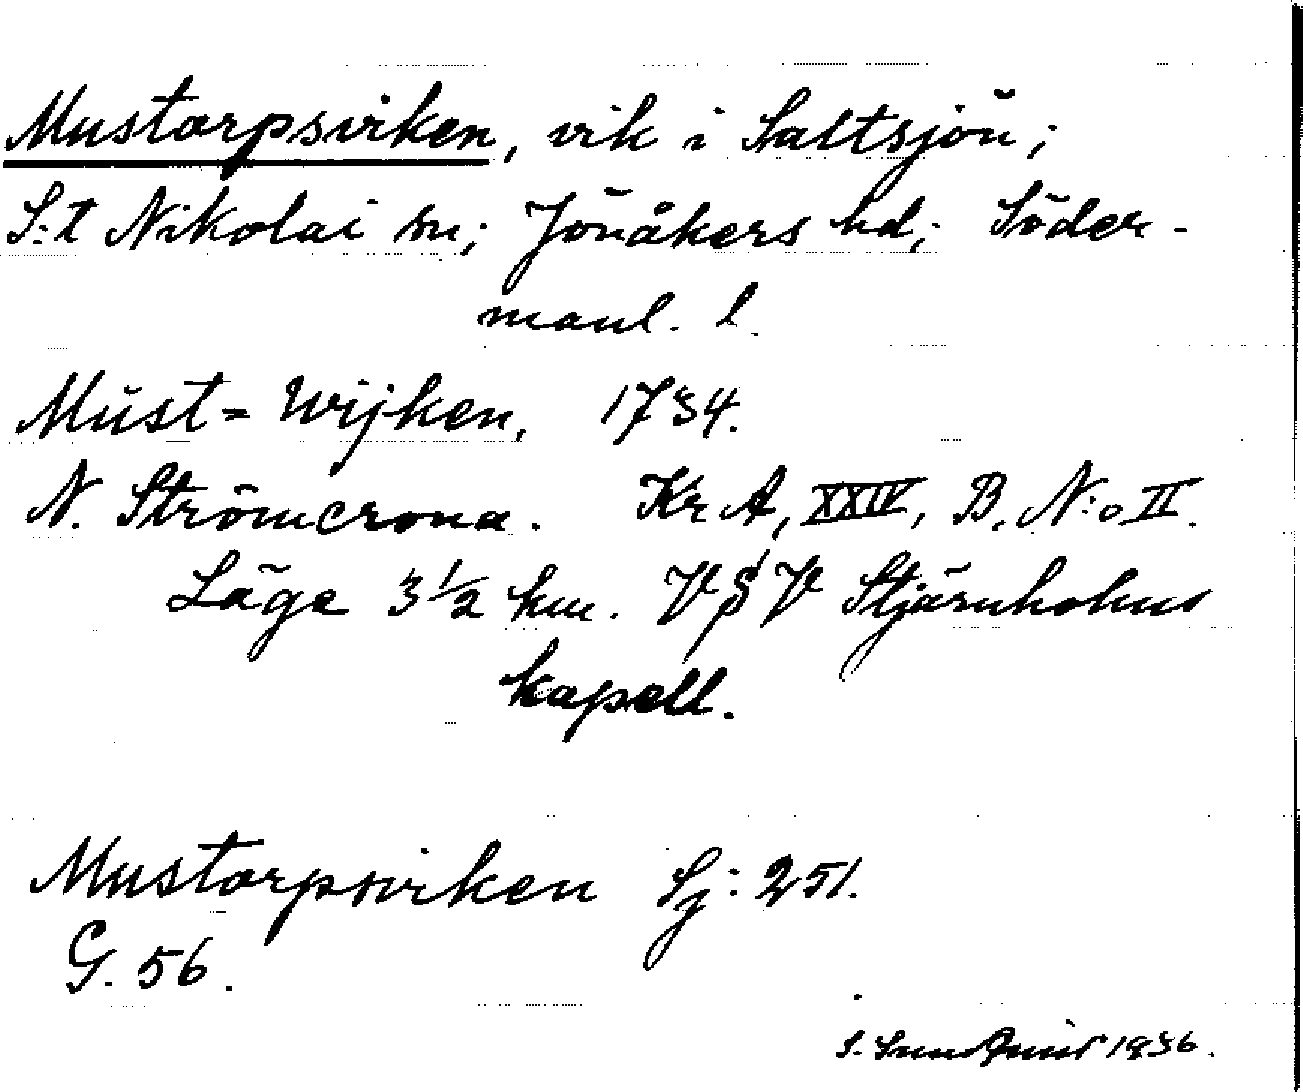 Mustorpsviken, vik i Saltsjön;
S:t Nikolai sn; Jönåkers hd; Söder-
manl. l.
Must-Wijken, 1734.
N. Strömcrona. KrA, XXIV, B, N:o II.
Läge 3 1/2 km. VSV Stjärnholms
kapell.
Mustorpsviken Sj: 251.
G. 56.
1936.